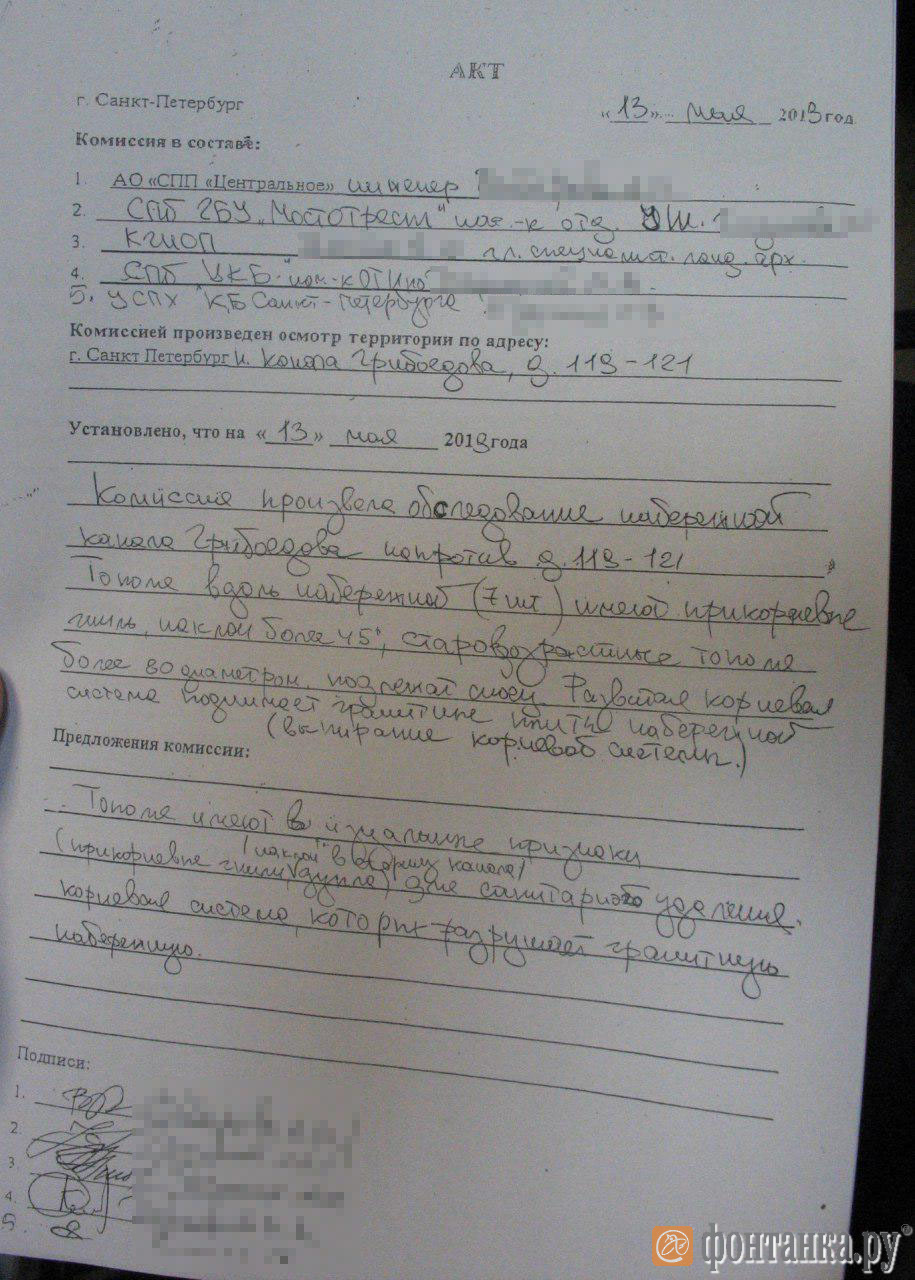 АКТ
г. Санкт-Петербург
«13» мая 2013 год
Комиссия в составе:
1. АО «СПП «Центральное» инженер
2. СПб ГБУ „Мостотрест"
3. КГИОП гл. специалист. ланд. арх.
4. СПб
5. УСПХ "КБ Санкт-Петербурга
Комиссией произведен осмотр территории по адресу:
г. Санкт Петербург н. канала Грибоедова, д. 119-121
Установлено, что на «13» мая 2013 года
Комиссия произвела обследование набережной
канала Грибоедова напротив д. 119-121
Тополя вдоль набережной (7 шт) имеют прикорневые
гниль, наклон более 45°, старовозрастные тополя
более 80 диаметром, подлежат сносу. Развитая корневая
система поднимает гранитные плиты набережной
(выпирание корневой системы.)
Предложения комиссии:
Тополя имеют признаки
/наклон в сторону канала/
(прикорневые гнили, дупла) для санитарного удаления.
корневая система, которых разрушает гранитную
набережную.
Подписи:
1.
2.
3.
4.
5
фонтанка.ру